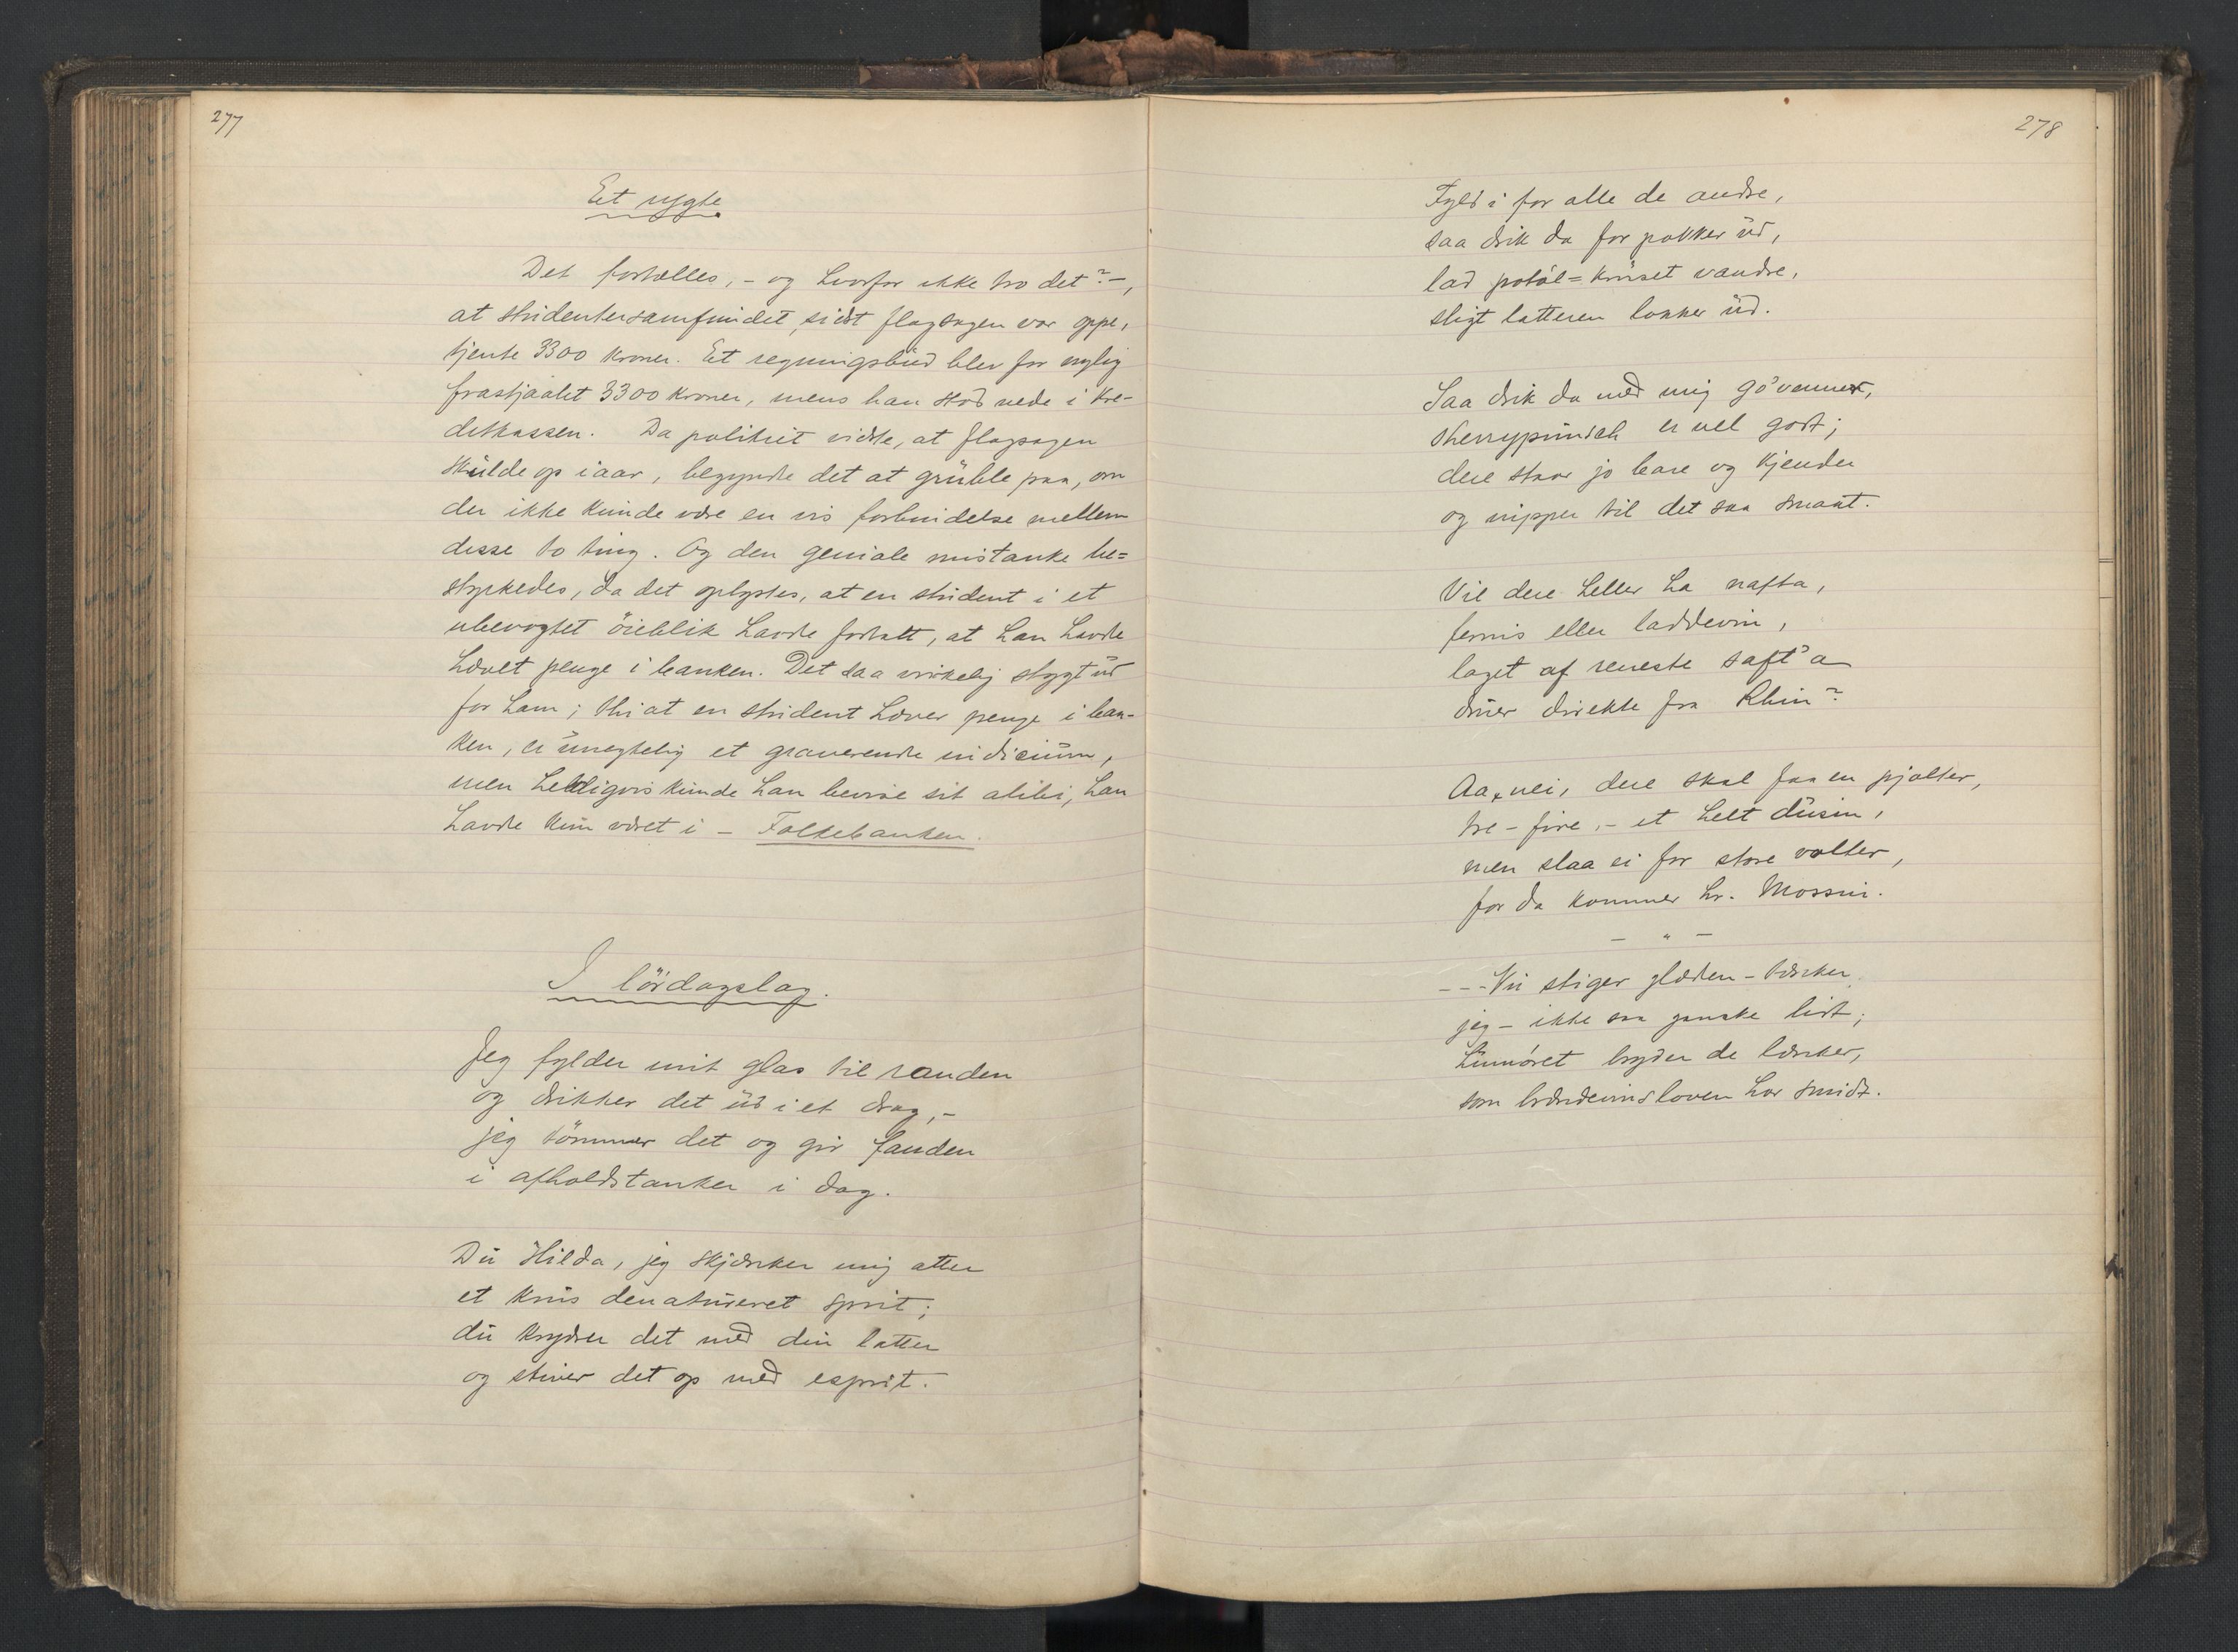 277
Et rygte
Det fortælles, – og hvorfor ikke tro det? –,
at studentersamfundet, sidst flagsagen var oppe,
tjente 3300 kroner. Et regningsbud blev for nylig
frastjaalet 3300 kroner, mens han stod nede i Kre-
ditkassen. Da politiet vidste, at flagsagen
skulde op i aar, begyndte det at gruble paa, om
der ikke kunde være en vis forbindelse mellem
disse to ting. Og den geniale mistanke be=
styrkedes, da det oplystes, at en student i et
ubevogtet öieblik havde fortalt, at han havde
hævet penge i banken. Det saa virkelig stygt ud
for ham; thi at en student hæver penge i ban-
ken, er unegtelig et graverende indicium,
men heldigvis kunde han bevise sit alibi, han
havde kun været i – Folkebanken.
I lördagslag.
Jeg fylder mit glas til randen
og drikker det ud i et drag, –
jeg tömmer det og gir fanden
i afholdstanker i dag.
Du Hilda, jeg skjænker mig atter
et krus denatureret sprit;
du krydrer det med din latter
og stiver det op med esprit.
278
Fyld i for alle de andre,
saa drik da for pokker ud,
lad potöl=kruset vandre,
sligt latteren lokker ud.
Saa drik da med mig go'venner,
sherrypunsch er vel godt;
dere staar jo bare og kjender
og nipper til det saa smaat.
Vil dere heller ha nafta,
fernis eller laddevin,
laget af reneste saft'a
druer direkte fra Rhin?
Aa, nei, dere skal faa en pjolter,
tre – fire, – et helt dusin,
men slaa ei for store volter,
for da kommer hr. Mossin.
– „ –
– – – Vi stiger glæden – tænker
jeg – ikke saa ganske lidt;
humöret bryder de lænker,
som brændevinsloven har smidt.